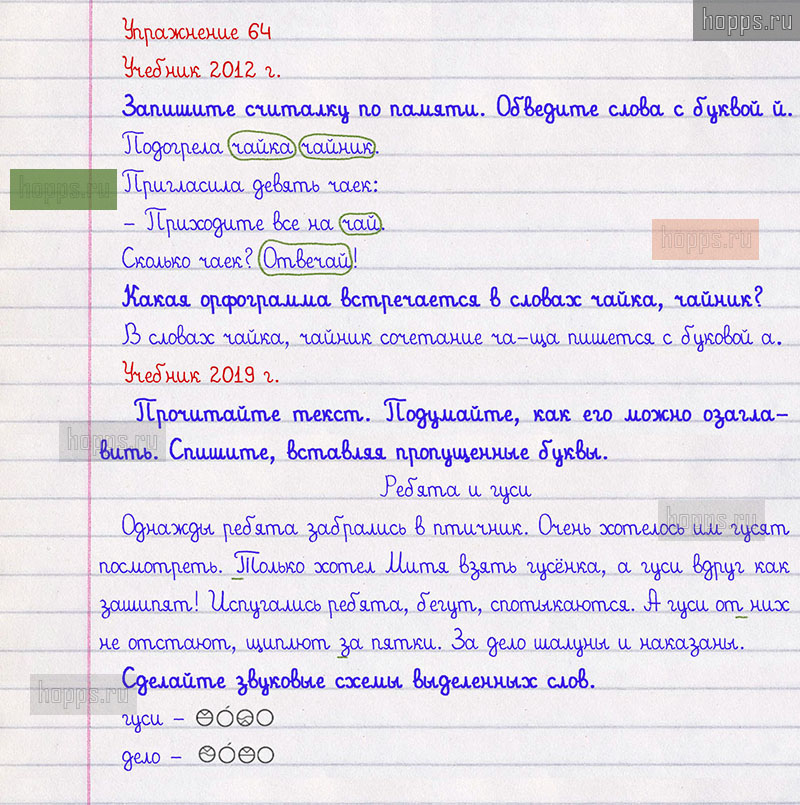 hopps.ru
Упражнение 64
Учебник 2012 г.
Запишите считалку по памяти. Обведите слова с буквой й.
Подогрела чайка чайник.
hopps.ru
Пригласила девять чаек:
– Приходите все на чай.
hopps.ru
Сколько чаек? Отвечай!
Какая орфограмма встречается в словах чайка, чайник?
В словах чайка, чайник сочетание ча-ща пишется с буковой а.
Учебник 2019 г.
Прочитайте текст. Подумайте, как его можно озагла-
hopps.ru
вить. Спишите, вставляя пропущенные буквы.
Ребята и гуси
hopps.ru
Однажды ребята забрались в птичник. Очень хотелось им гусят
посмотреть. Только хотел Митя взять гусёнка, а гуси вдруг как
зашипят! Испугались ребята, бегут, спотыкаются. А гуси от них
не отстают, щиплют за пятки. За дело шалуны и наказаны.
Сделайте звуковые схемы выделенных слов.
hopps.ru
гуси –
дело –